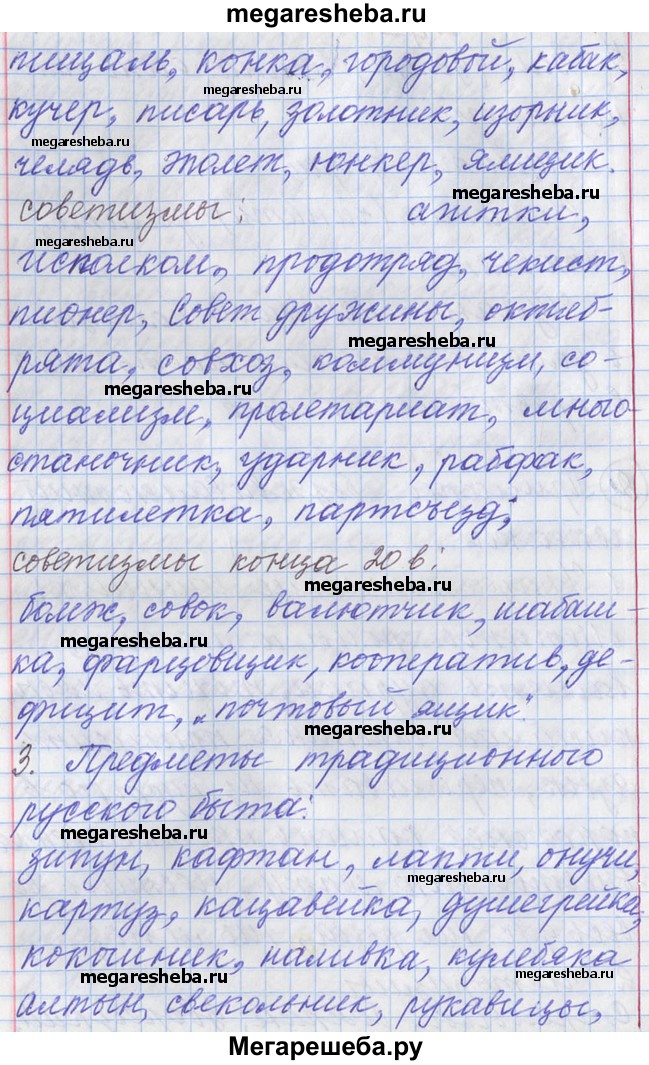 megaresheba.ru
пищаль, конка, городовой, кабак,
megaresheba.ru
кучер, писарь, золотник, изорник,
megaresheba.ru
челядь, эполет, юнкер, ямщик.
megaresheba.ru
советизмы: агитки,
megaresheba.ru
исполком, продотряд, чекист,
пионер, Совет дружины, октяб-
megaresheba.ru
рята, совхоз, коммунизм, со-
megaresheba.ru
циализм, пролетариат, много-
станочник, ударник, рабфак,
пятилетка, партсъезд;
советизмы конца 20 в:
megaresheba.ru
бомж, совок, валютчик, шабаш-
megaresheba.ru
ка, фарцовщик, кооператив, де-
фицит, „почтовый ящик".
megaresheba.ru
3. Предметы традиционного
русского быта:
megaresheba.ru
зипун, кафтан, лапти, онучи,
megaresheba.ru
картуз, кацавейка, душегрейка,
кокошник, наливка, кулебяка
megaresheba.ru megaresheba.ru
алтын, свекольник, рукавицы,
Мегарешеба.ру